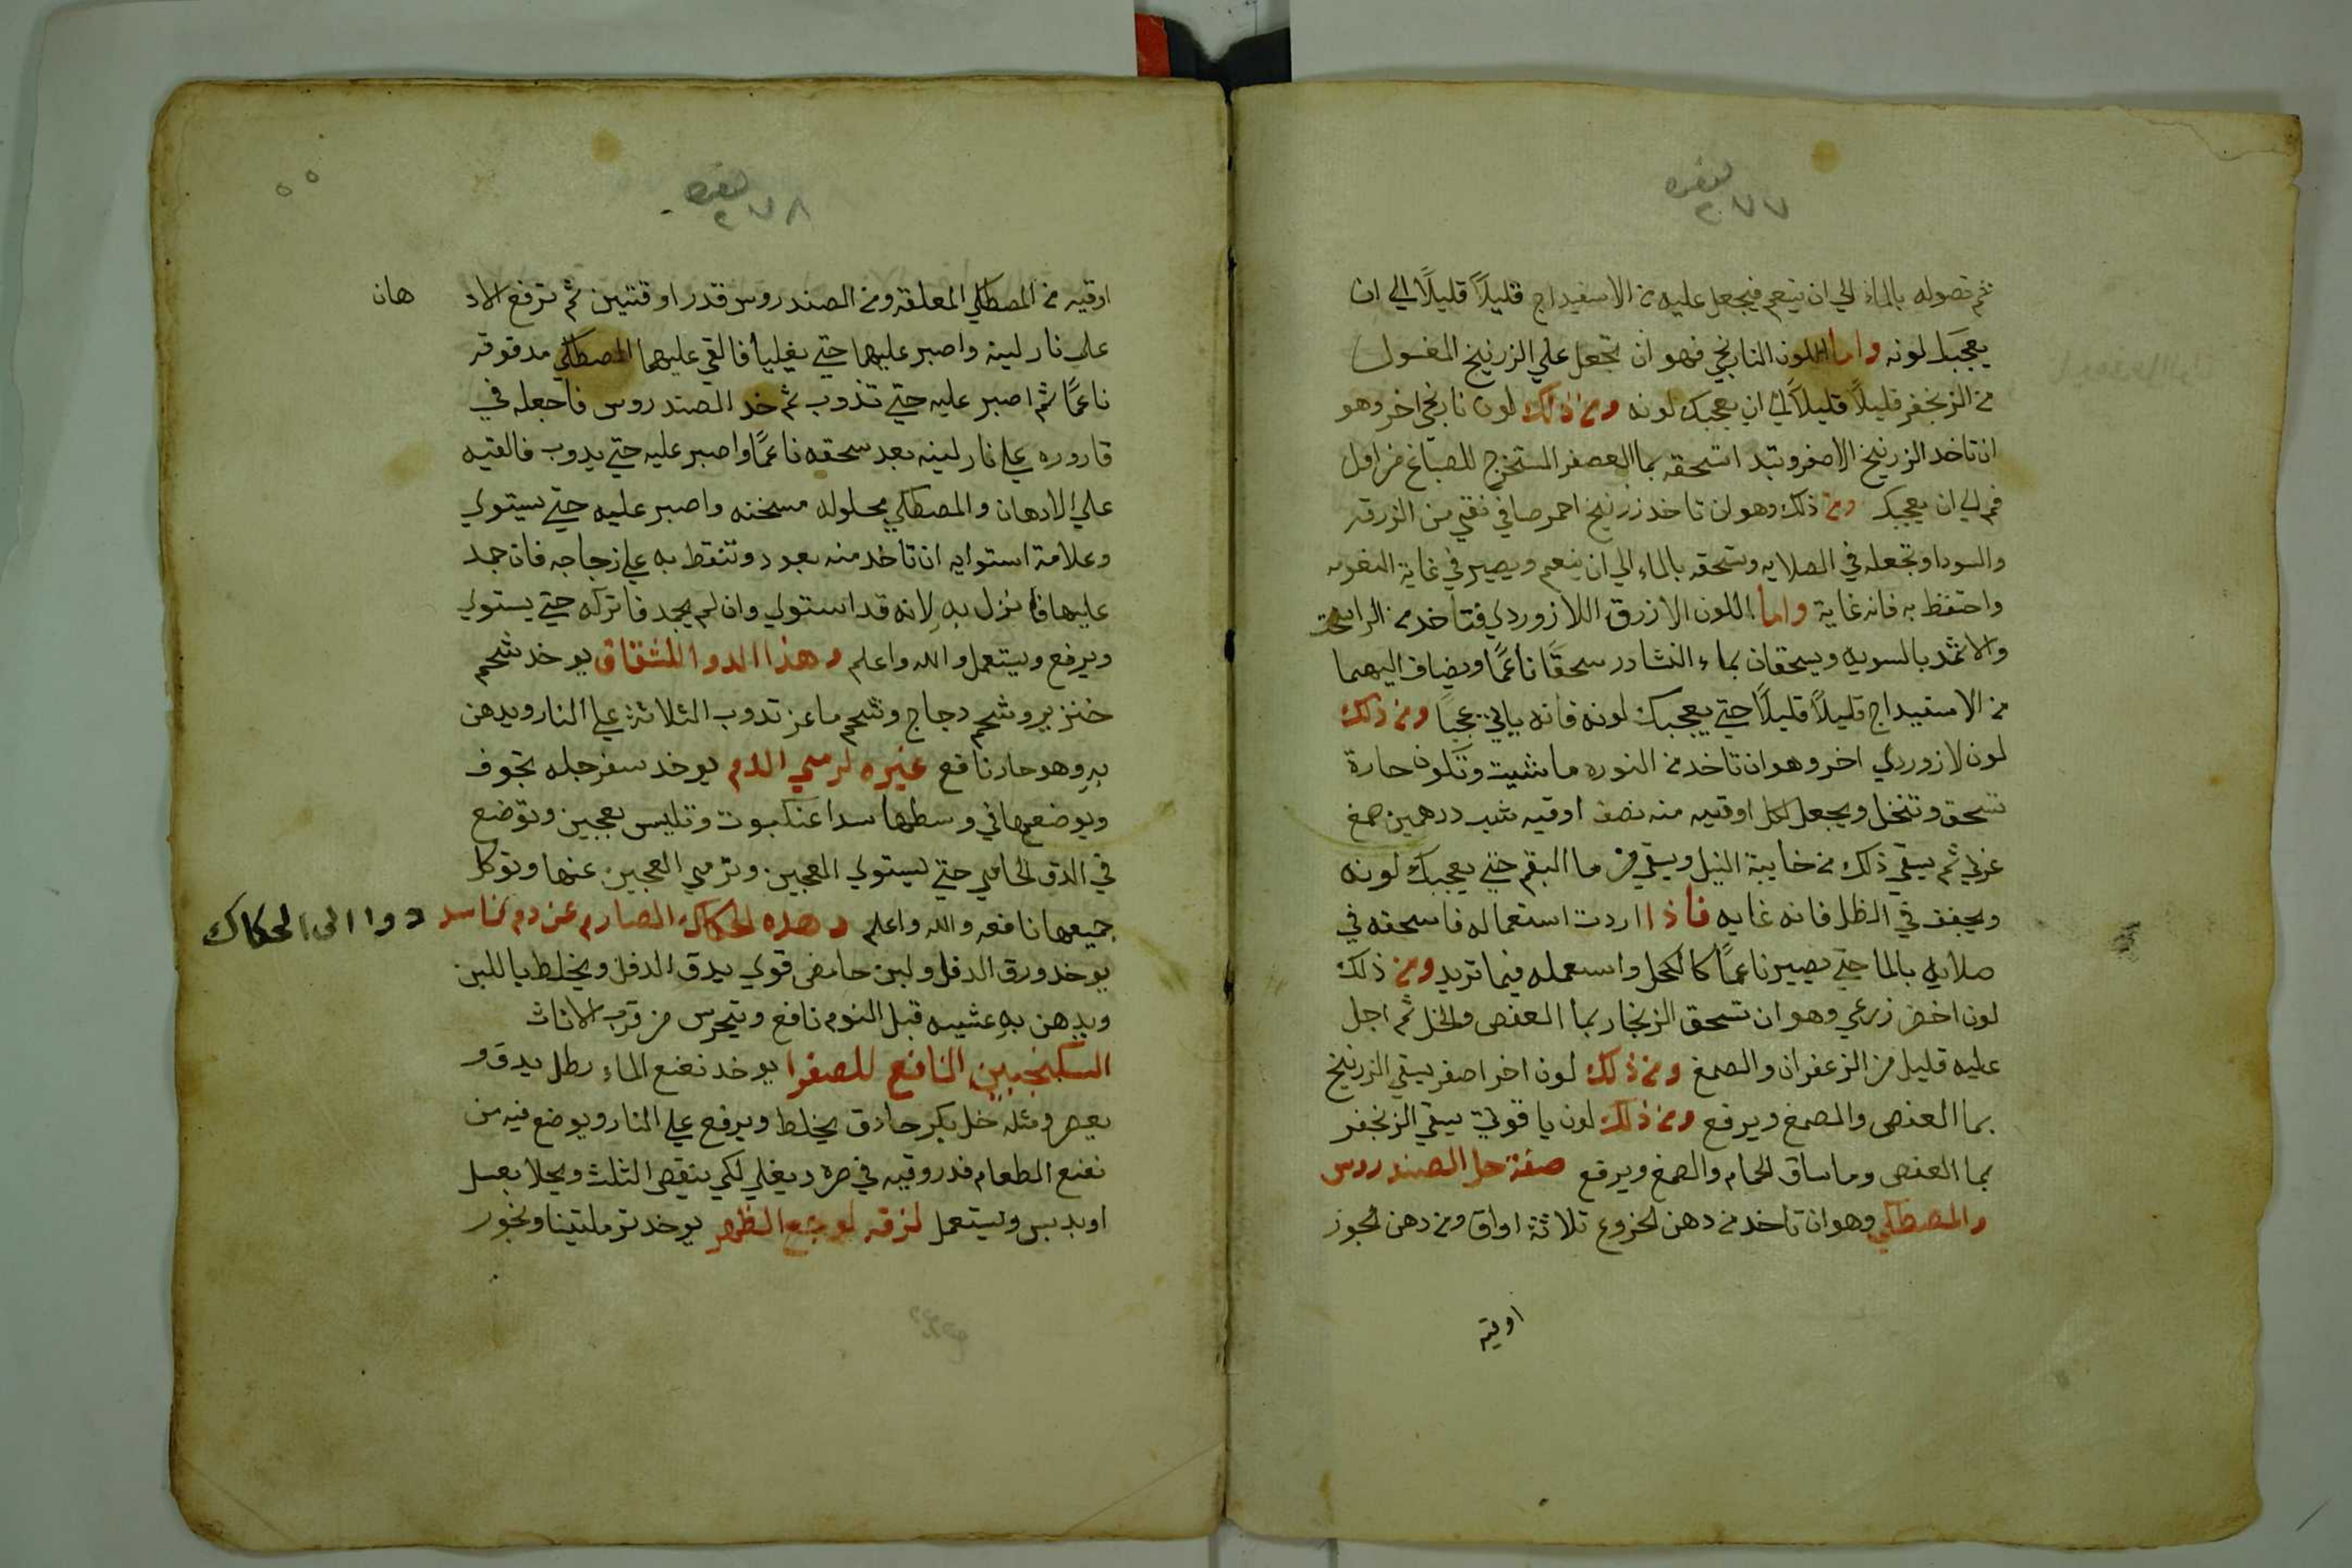 نمره
٢٧٧
ثم تصوله بالماء الي ان ينعم فيجعل عليه من الاسفيداج قليلاً قليلاً الي ان
يعجبك لونه واما اللون النارنجي فهو ان تجعل علي الزرنيخ المغسول
من الزنجفر قليلاً قليلاً الي ان يعجبك لونه ومن ذلك لون نارنجي اخر وهو
ان تاخد الزرنيخ الاصفر وتبدا تسحقه بما العصفر المستخرج للصباغ من اول
فم الي ان يعجبك ومن ذلك وهو ان تاخد زرنيخ احمر صافي نقي من الزرقه
والسودا وتجعله في الصلايه وتسحقه بالماء الي ان ينعم ويصير في غاية النعومه
واحتفظ به فانه غاية واما اللون الازرق اللازوردي فتاخد من الراسخت
والاثمد بالسويه ويسحقان بماء النشادر سحقًا ناعمًا ويضاف اليهما
من الاسفيداج قليلاً قليلاً حتي يعجبك لونه فانه ياتي عجيبًا ومن ذلك
لون لازوردي اخر وهو ان تاخد من النوره ما شيت وتكون حارة
تسحق وتنخل ويجعل لكل اوقيه منه نصف اوقيه شب درهمين صمغ
عربي ثم يسقي ذلك من خابية النيل ويسقي من ما البقم حتي يعجبك لونه
ويجفف في الظل فانه غايه فاذا اردت استعماله فاسحقه في
صلايه بالما حتي يصير ناعمًا كالكحل واستعمله فيما تريد ومن ذلك
لون اخضر زرعي وهو ان تسحق الزنجار بما العفص والخل ثم اجل
عليه قليل من الزعفران والصمغ ومن ذلك لون اخر اصفر يسقي الزرنيخ
بما العفص والصمغ ويرفع ومن ذلك لون ياقوتي يسقي الزنجفر
بما العفص وما ساق الحمام والصمغ ويرفع صفة حل الصندروس
والمصطكي وهو ان تاخد من دهن الخروع ثلاثة اواق ومن دهن الجوز
اوقيه
نمره
٢٧٨
٥٥
اوقيه من المصطكي المعلقه ومن الصندروس قدر اوقتين ثم ترفع الاد هان
علي نار لينه واصبر عليهما حتي يغليا فالقي عليهما المصطكي مدقوقه
ناعمًا ثم اصبر عليه حتي تذوب ثم خد الصندروس فاجعله في
قاروره علي نار لينه بعد سحقه ناعمًا واصبر عليه حتي يدوب فالقيه
علي الادهان والمصطكي محلوله مسخنه واصبر عليه حتي يستوي
وعلامة استوايه ان تاخد منه بعود وتنقط به علي زجاجه فان جمد
عليها فانزل به لانه قد استوي وان لم يجمد فاتركه حتي يستوي
ويرفع ويستعمل والله واعلم وهذا الدوا للشقاق يوخد شحم
خنزير وشحم دجاج وشحم ماعز تدوب الثلاثة علي النار ويدهن
به وهو حار نافع غيره لرمي الدم يوخد سفرجله تجوف
ويوضع في وسطها سدا عنكبوت وتلبس بعجين وتوضع
في الدق الحامي حتي يستوي العجين وترمي العجين عنها وتوكل
جميعها نافعه والله واعلم وهذه الحكاك الصارم عن دم فاسد دوا الى الحكاك
يوخد ورق الدفل ولبن حامض قوي يدق الدفل ويخلط باللبن
ويدهن به عشيه قبل النوم نافع ويتحرس من قرب الاناث
السكنجبين النافع للصفرا يوخد نعنع الماء رطل يدق و
يعصر ومثله خل بكر حادق يخلط ويرفع علي النار ويوضع فيه من
نعنع الطعام قدر وقيه في صره ويغلي لكي ينقص الثلث ويحلا بعسل
او بدبس ويستعمل لزقه لوجع الظهر يوخد ترملتينا وبخور